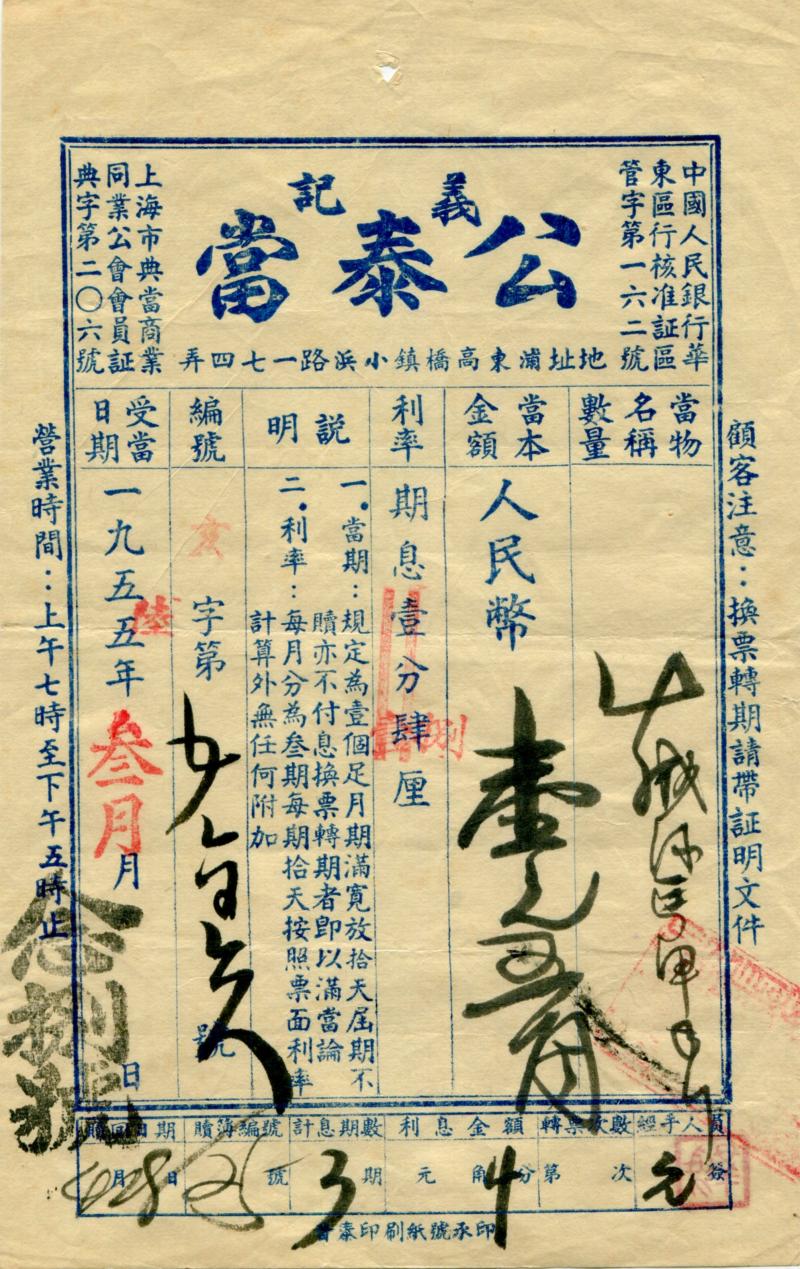 中國人民銀行華
東區行核准証區
管字第一六二號
義記
公泰當
上海市典當商業
同業公會會員証
典字第二〇六號
地址浦東高橋鎮小浜路一七四弄
顧客注意：換票轉期請帶証明文件
當物
名稱
數量
當本
金額
人民幣
壹元五角
利率
期息壹分肆厘
捌
說明
一．當期：規定為壹個足月期滿寬放拾天屆期不
贖亦不付息換票轉期者卽以滿當論
二．利率：每月分為叁期每期拾天按照票面利率
計算外無任何附加
編號
亥
字第
號
受當
日期
一九五五年
陸
叁月
月
念捌號
日
營業時間：上午七時至下午五時止
經手人員
簽
轉票次數
第 次
利息金額
元 角 分
4
計息期數
3 期
贖簿編號
號
贖回日期
月 日
4 28
普泰印刷紙號承印